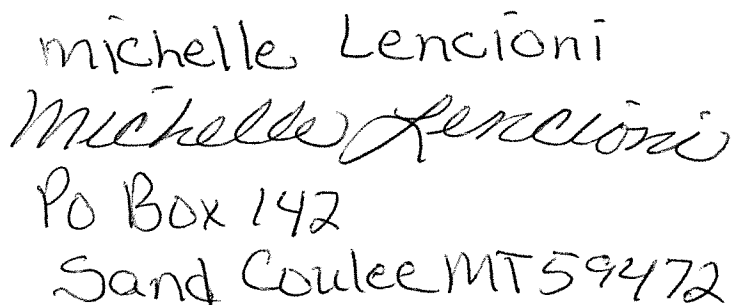 michelle Lencioni
Michelle Lencioni
Po Box 142
Sand Coulee MT 59472